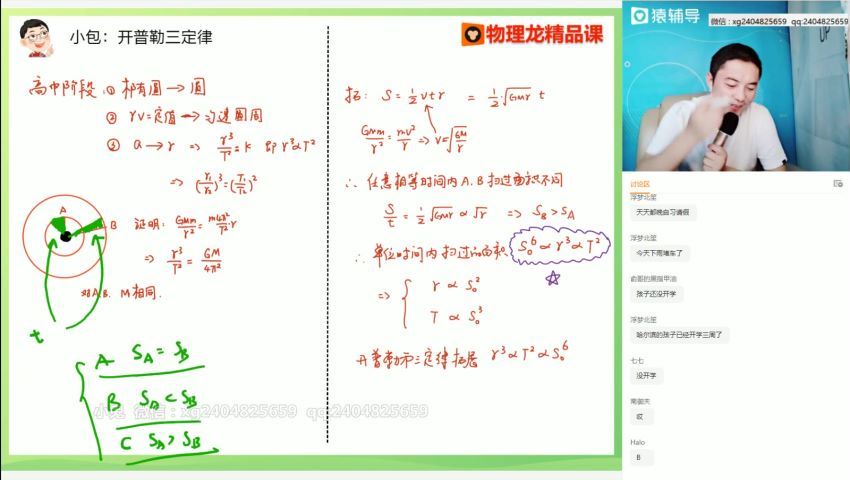 小包：开普勒三定律
物理龙精品课
猿辅导
微信：xg2404825659 qq:2404825659
高中阶段 ① 椭圆→圆
② rv=定值→匀速圆周
③ a→r ⇒ r³/T²=k 即 r³∝T²
⇒ (r₁/r₂)³=(T₁/T₂)²
A
B
证明: GMm/r²=m4π²/T²·r
⇒ r³/T²=GM/4π²
对A.B. M相同.
t
A S_A=S_B
B S_A<S_B
C S_A>S_B
拓: S=½vtr =½·√GMr t
GMm/r²=mv²/r ⇒ v=√GM/r
∴ 任意相等时间内A.B扫过面积不同
S/t=½√GMr∝√r ⇒ S_B>S_A
∴ 单位时间内扫过的面积 S₀⁶∝r³∝T²
⇒ { r∝S₀²
T∝S₀³
开普勒第三定律拓展 r³∝T²∝S₀⁶
小包 微信：xg2404825659 qq:2404825659
讨论区
浮梦北笙
天天都晚自习请假
浮梦北笙
今天下雨堵车了
俞哥的黑指甲油
孩子还没开学
浮梦北笙
哈尔滨的孩子已经开学三周了
七七
没开学
南御夫
哎
Halo
B